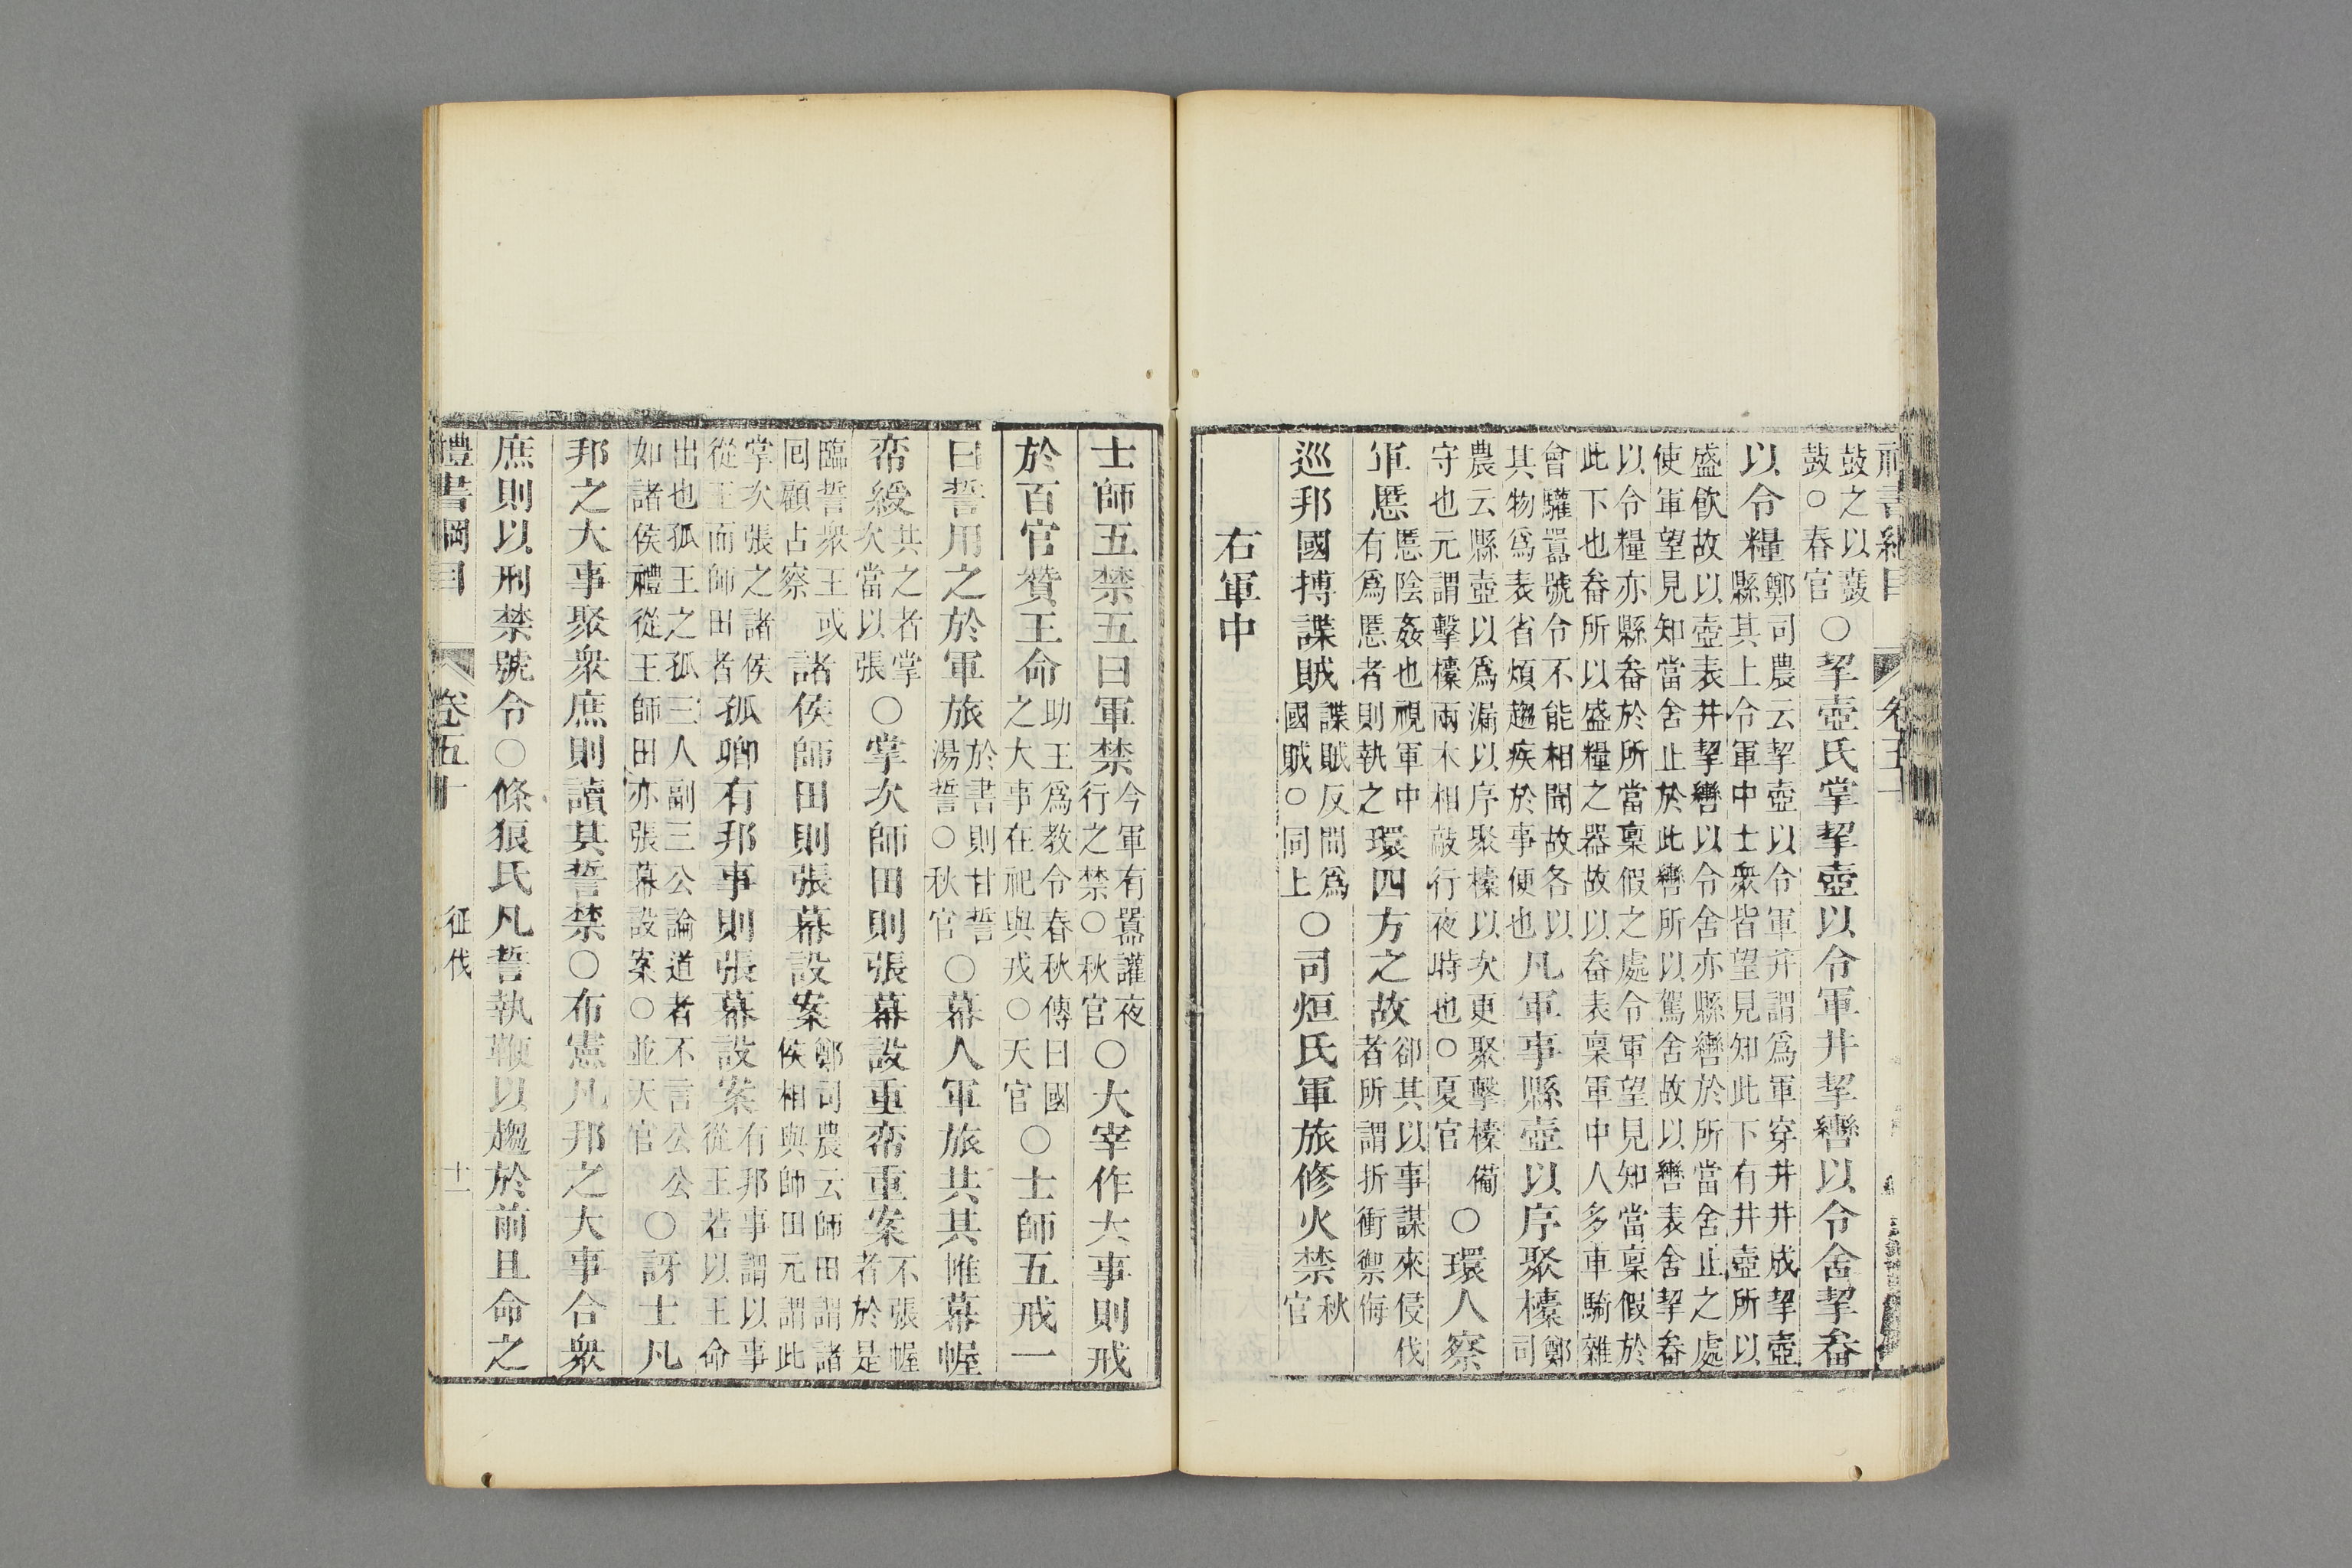 卷五十
鼓之以鼖
鼓○春官
○挈壺氏掌挈壺以令軍井挈轡以令舍挈畚
以令糧
鄭司農云挈壺以令軍井謂爲軍穿井井成挈壺
縣其上令軍中士衆皆望見知此下有井壺所以
盛飮故以壺表井挈轡以令舍亦縣轡於所當舍止之處
使軍望見知當舍止於此轡所以駕舍故以轡表舍挈畚
以令糧亦縣畚於所當稟假之處令軍望見知當稟假於
此下也畚所以盛糧之器故以畚表稟軍中人多車騎雜
會讙嚻號令不能相聞故各以
其物爲表省煩趨疾於事便也
凡軍事縣壺以序聚㯓
鄭
司
農云縣壺以爲漏以序聚㯓以次更聚擊㯓備
守也元謂擊㯓兩木相敲行夜時也○夏官
○環人察
軍慝
慝陰姦也視軍中
有爲慝者則執之
環四方之故
卻其以事謀來侵伐
者所謂折衝禦侮
巡邦國搏諜賊
諜賊反間爲
國賊○同上
○司烜氏軍旅修火禁
秋
官
右軍中
士師五禁五曰軍禁
今軍有嚻讙夜
行之禁○秋官
○大宰作大事則戒
於百官贊王命
助王爲教令春秋傳曰國
之大事在祀與戎○天官
○士師五戒一
曰誓用之於軍旅
於書則甘誓
湯誓○秋官
○幕人軍旅共其帷幕幄
帟綬
共之者掌
次當以張
○掌次師田則張幕設重帟重案
不張幄
者於是
臨誓衆王或
回顧占察
諸侯師田則張幕設案
鄭司農云師田謂諸
侯相與師田元謂此
掌次張之諸侯
從王而師田者
孤卿有邦事則張幕設案
有邦事謂以事
從王若以王命
出也孤王之孤三人副三公論道者不言公公
如諸侯禮從王師田亦張幕設案○並天官
○訝士凡
邦之大事聚衆庶則讀其誓禁○布憲凡邦之大事合衆
庶則以刑禁號令○條狼氏凡誓執鞭以趨於前且命之
禮書綱目 卷五十 征伐 十一